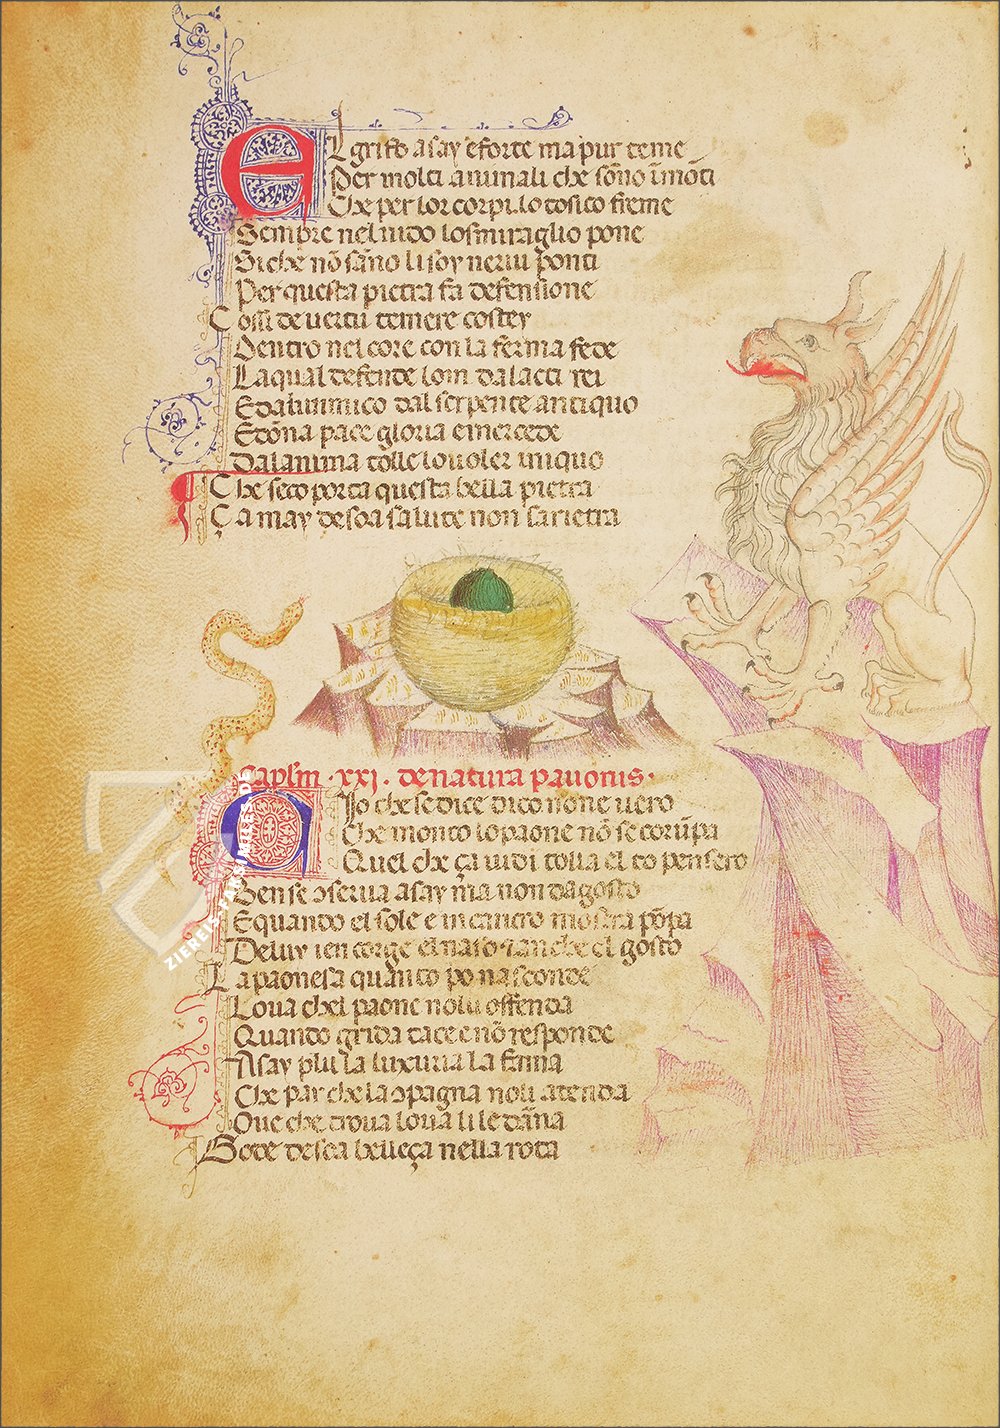 El grifo asay e forte ma pur teme
Per molti animali che sōno ī mōti
Che per lor corpi lo tosico freme
Sempre nel nido lo smiraglio pone
Siche nō sāno li soy neriu ponti
Per questa pietra fa defensione
Cossi de uertu temere costey
Dentro nel core con la ferma fede
La qual defende lom dalacti rei
E dalinimico dal serpente antiquo
E dōna pace gloria e mercede
Dalanima tolle lo uoler iniquo
Che seco porta questa bella pietra
Ça may de soa salute non sarietra
Caplm · xxj · de natura pauonis ·
Cio che se dice dico none uero
Che monto lo paone nō se corūpa
Quel che ça uidi tolla el to pensero
Ben se ɔserua asay ma non dagosto
E quando el sole e in cancro mostra pōpa
De luy ien torge el naso
anche el gosto
La paonessa quanto po nasconde
Loua chel paone no lu offenda
Quando grida tace e nō responde
Asay piu la luxuria la fāma
Che par che la ɔpagna noli atenda
Oue che troua loua li le dāna
Gode de soa belleça nella rota
ZIEREIS FACSIMILES.DE